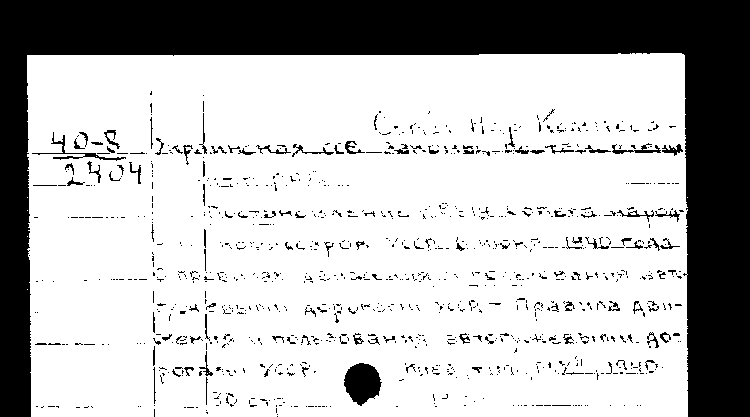 Совет Нар Комисса-
40-8 Украинская ССР. Законы, постановлени
2404
Постановление № 814 Совета народ-
комиссаров УССР 6 июня 1940 года
О правилах движения и пользования авто-
гужевыми дорогами УССР - Правила дви-
жения и пользования автогужевыми до-
рогами УССР. Киев, тип. 1940.
30 стр